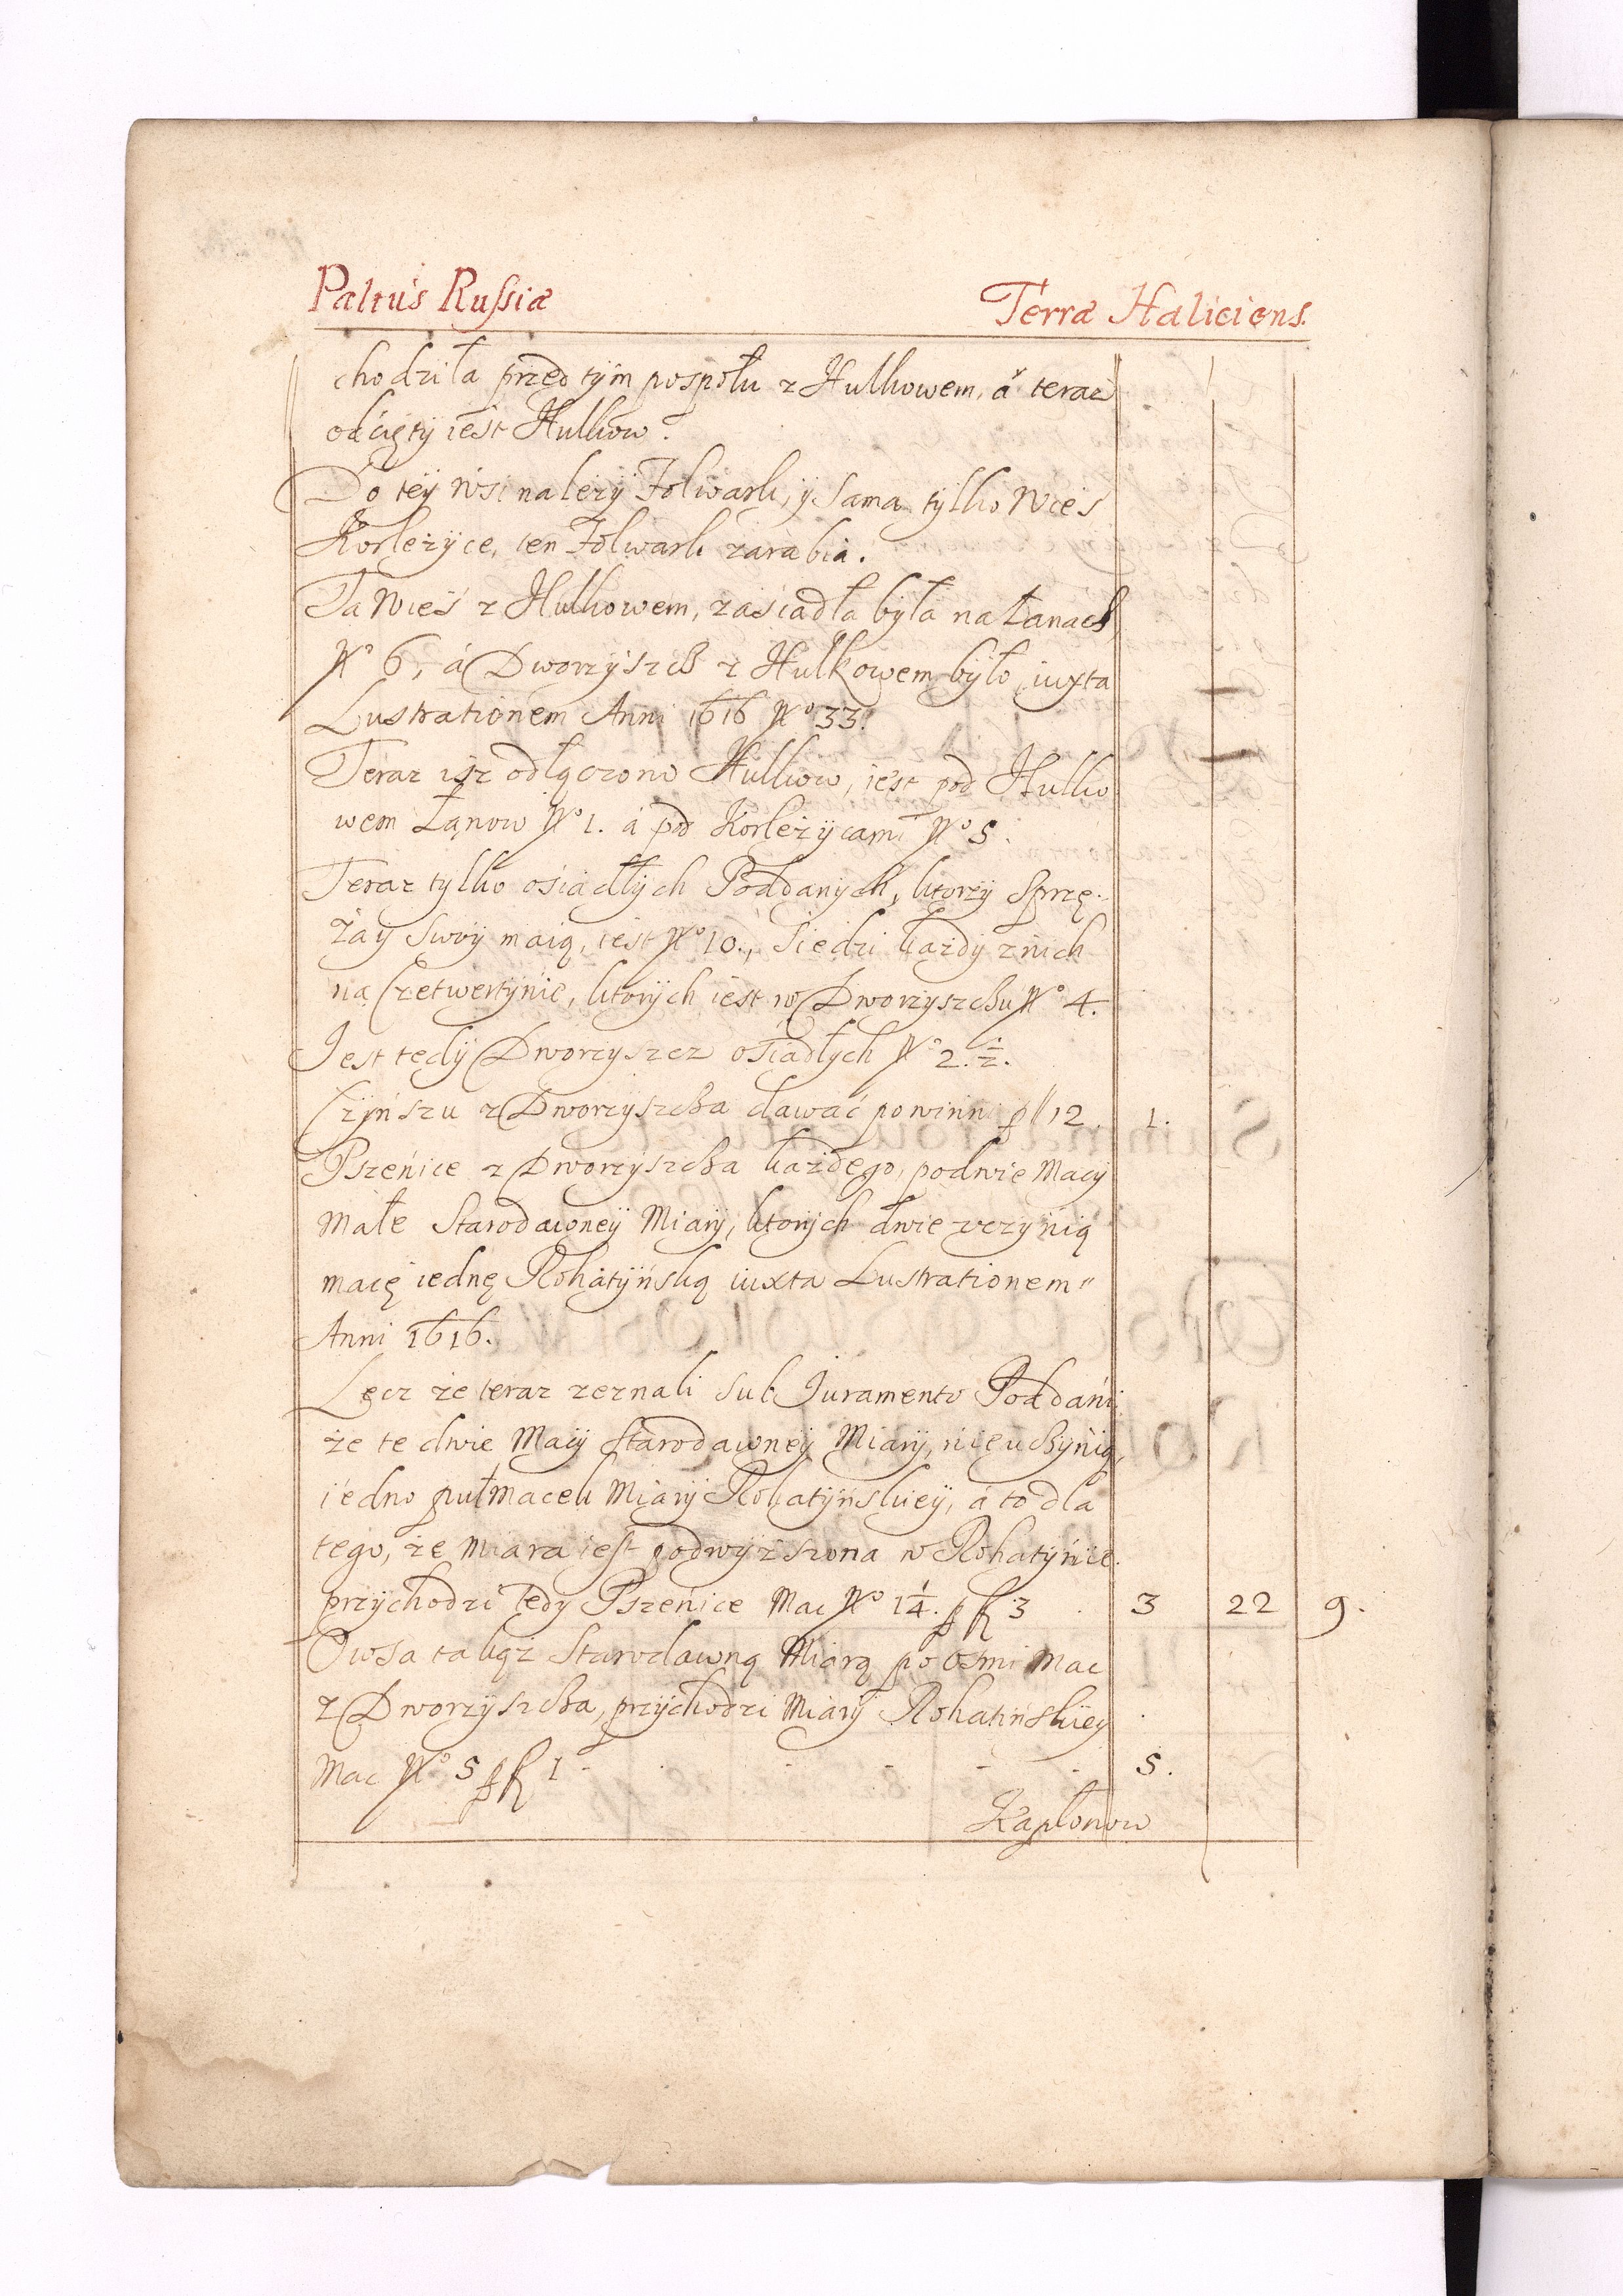 Paltus Russiæ Terræ Haliciens.
chodziła przed tym pospołu z Hulkowem, á teraz
odcięty iest Hulkow.
Do tey Wsi należy Folwark, y sama tylko Wieś
Korleżyce, ten Folwark zarabia.
Ta Wieś z Hulkowem, zasiadła była na Łanach
No 6, á Dworzyszcz z Hulkowem było iuxta
Lustrationem Anni 1616 No 33.
Teraz isz odłączono Hulkow, iest pod Hulko
wem Łanow No 1. á pod Korleżycami No 5.
Teraz tylko osiadłych Poddanych, ktorzy Sprzę-
żay swoy maią, iest No 10., siedzi każdy z nich
na Czetwertynie, ktorych iest w Dworzyszczu No 4.
Jest tedy Dworzyszcz osiadłych No 2. 1/2.
Czynszu z Dworzyszcza dawać powinni p // 12. 1.
Pszenice z Dworzyszcza każdego, po dwie Macy
Małe Starodawney Miary, ktorych dwie uczynią
macę iednę Rohatyńską iuxta Lustrationem
Anni 1616.
Lecz że teraz zeznali sub Juramento Poddani
że te dwie Macy Starodawney Miary, nie uczynią,
iedno pułmacek Miary Rohatyńskiey, á to dla
tego, że Miara iest podwyższona w Rohatynie.
przychodzi tedy Pszenice Mac No 1 1/4. p f 3 3 22 9.
Owsa takąż Starodawną Miarą po osmi Mac
z Dworzyszcza, przychodzi Miary Rohatińskiey
Mac No 5 p f 1 - 5.
Kapłonow